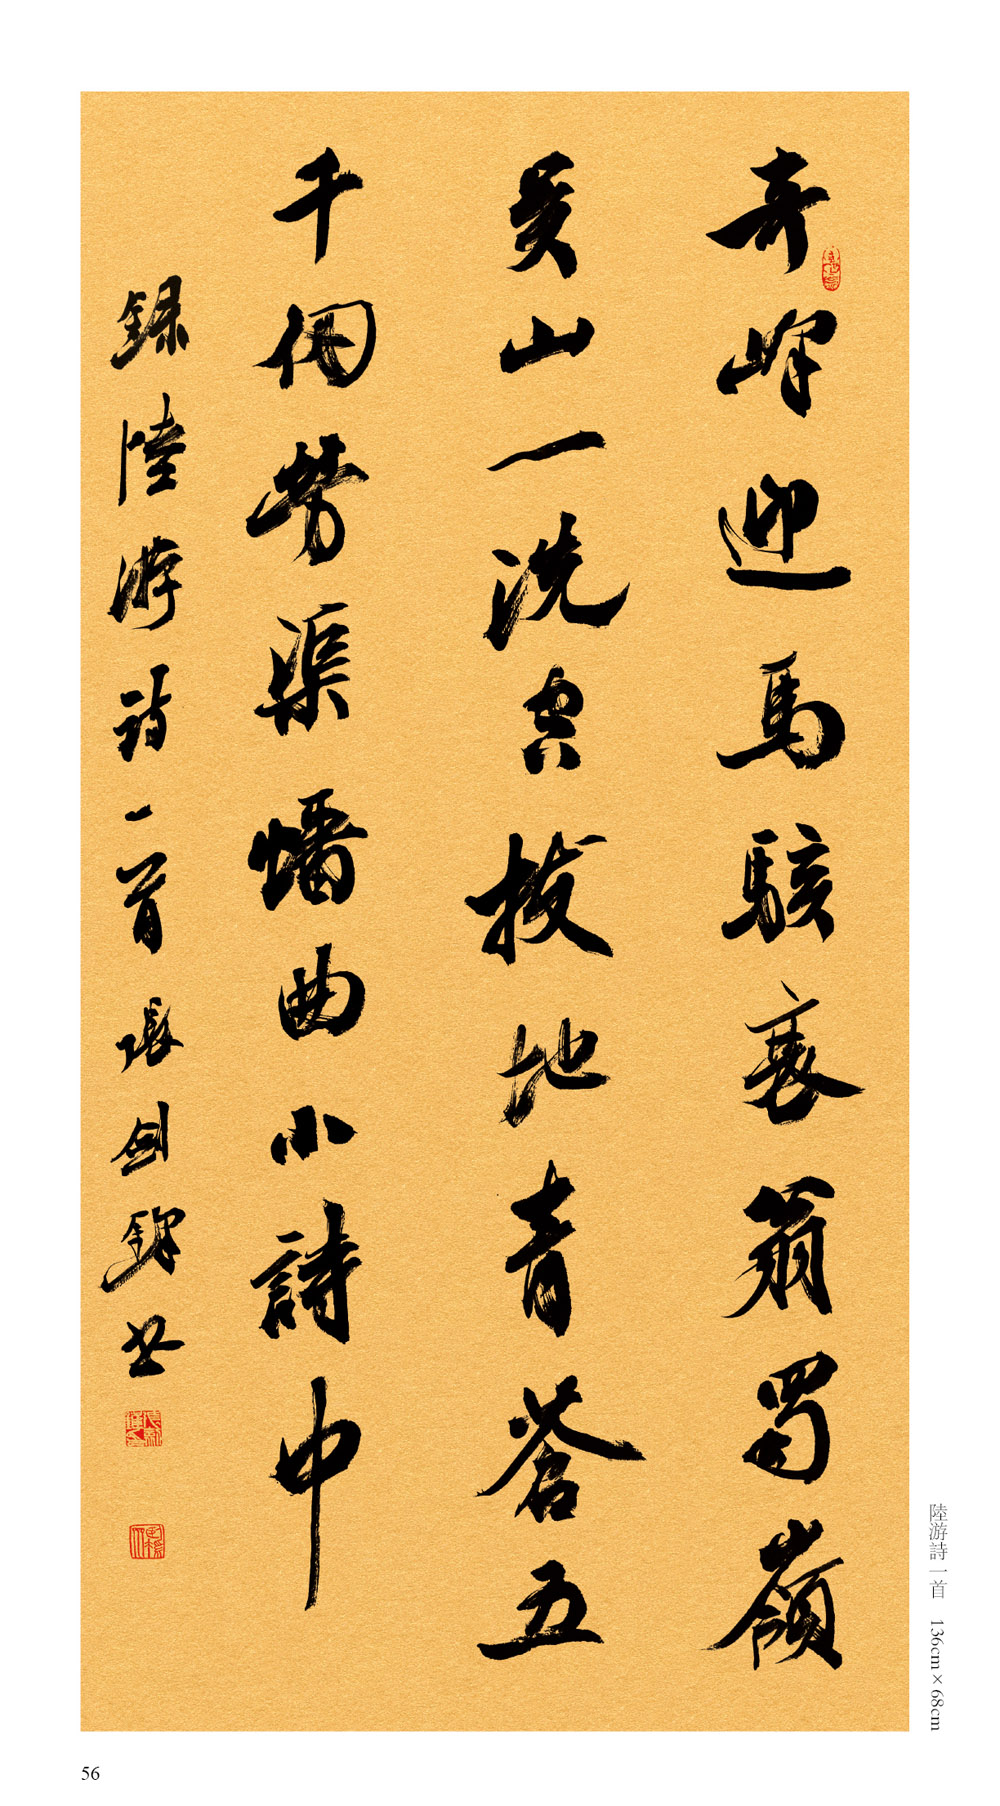 奇峰迎馬駭衰翁蜀嶺
吴山一洗空拔地青蒼五
千仞勞渠蟠曲小詩中
録陸游詩一首張剑鋒书
陸游詩一首 136cm×68cm
56